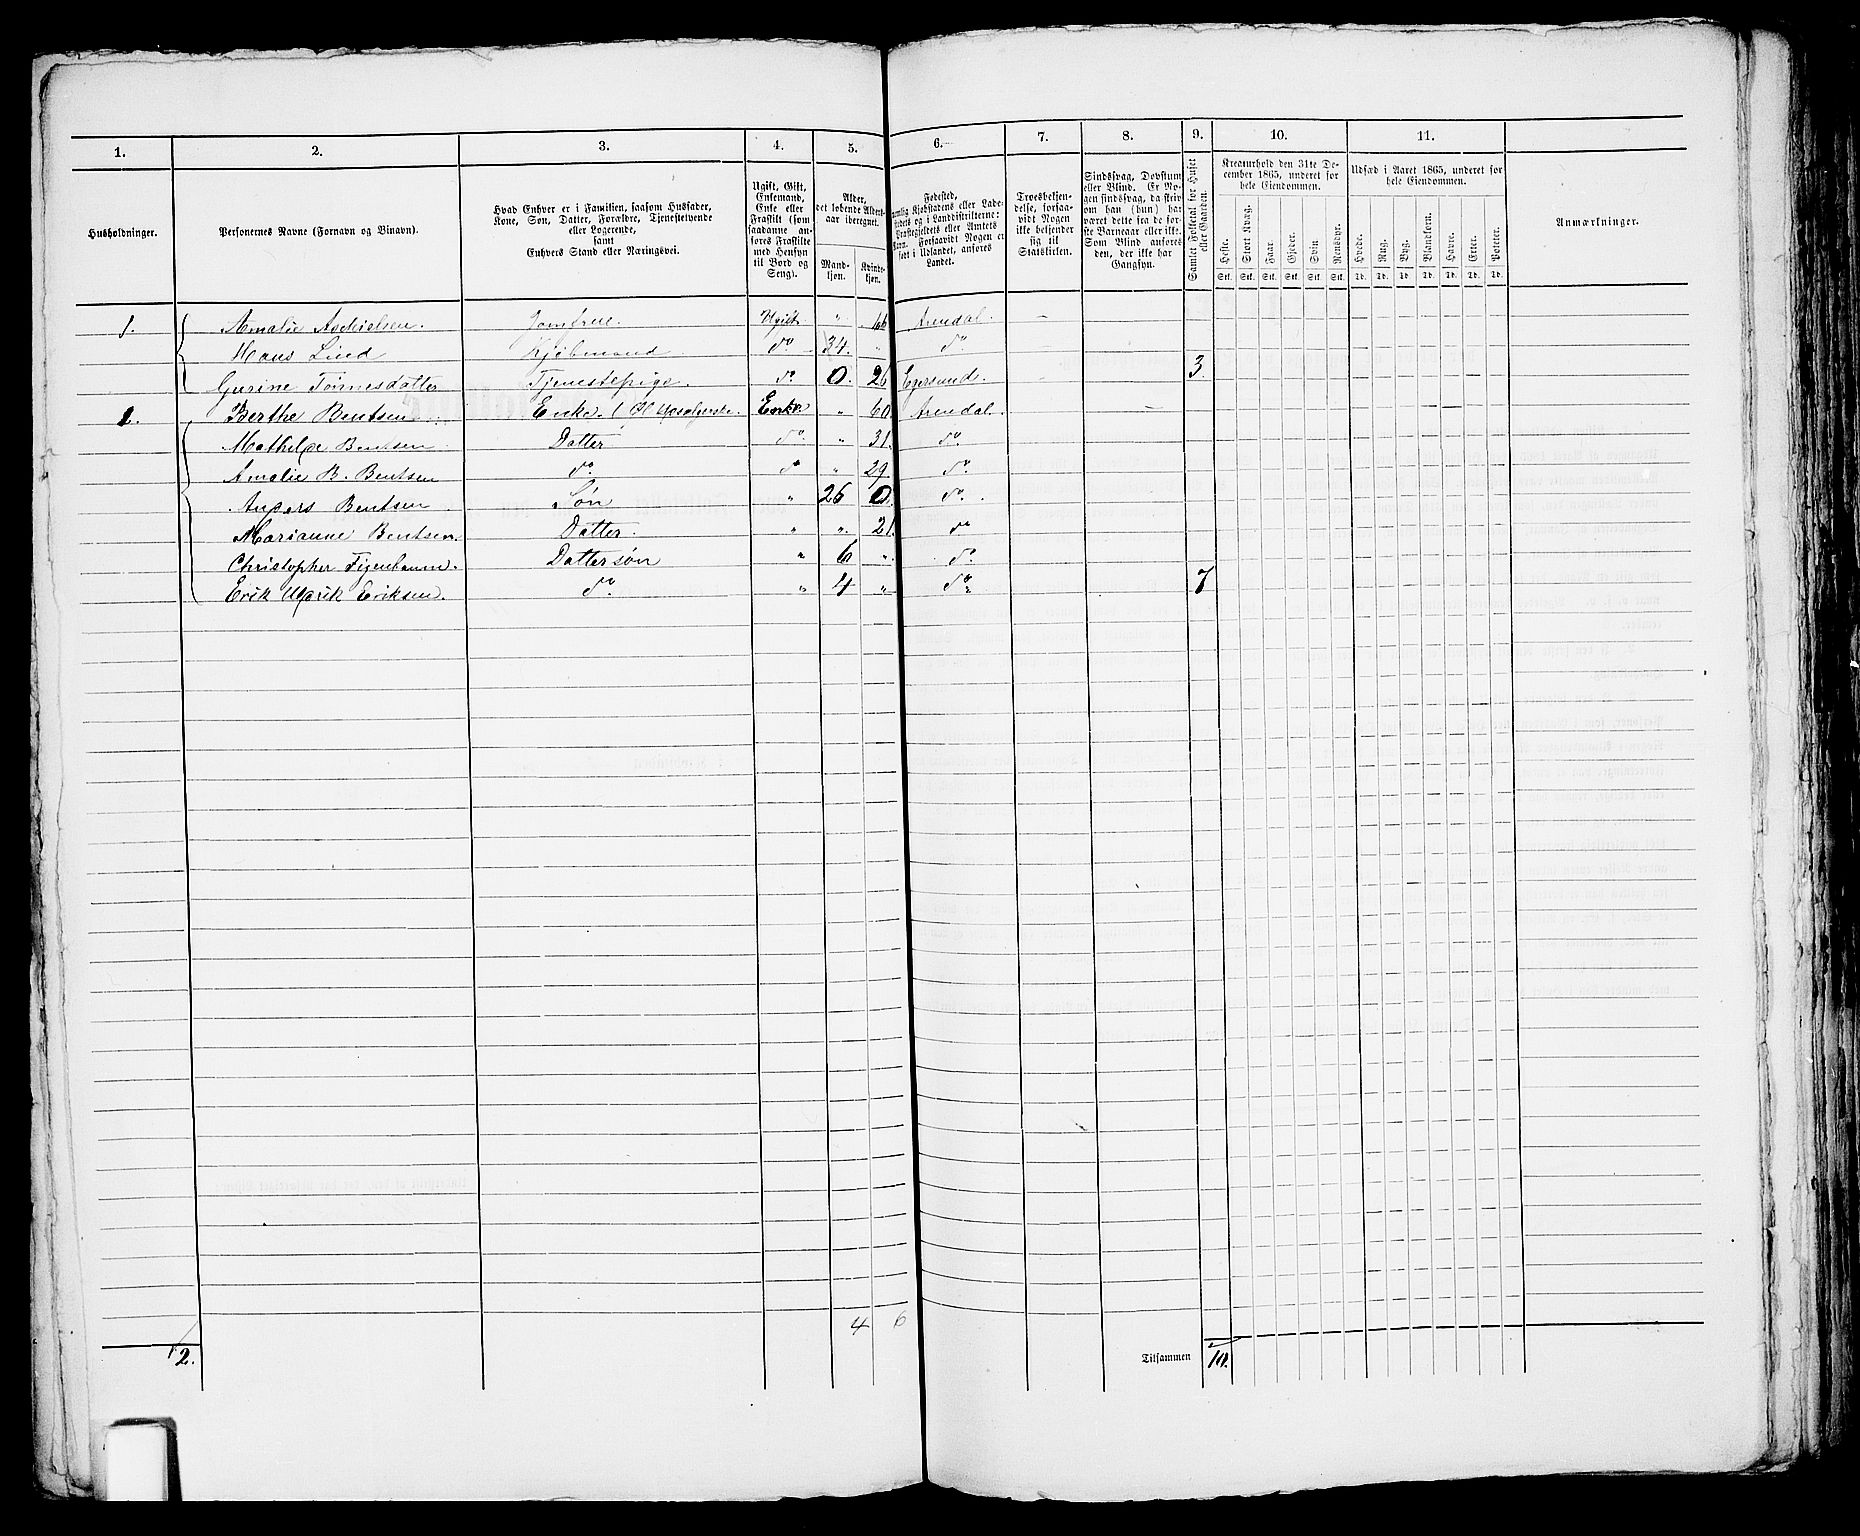 1. 2. 3. 4. 5. 6. 7. 8. 9. 10. 11.
Husholdninger.
Personernes Navne (Fornavn og Binavn).
Hvad Enhver er i Familien, saasom Husfader,
Kone, Søn, Datter, Forældre, Tjenestetyende
eller Logerende,
samt
Enhvers Stand eller Næringsvei.
Ugift, Gift,
Enkemand,
Enke eller
Fraskilt (som
saadanne an-
føres Fraskilte
med Hensyn
til Bord og
Seng).
Alder,
det løbende Alders-
aar iberegnet.
Mand-
kjøn.
Kvinde-
kjøn.
Fødested,
nemlig Kjøbstadens eller Lade-
stedets og i Landdistrikterne:
Præstegjeldets eller Amtets
Navn. Forsaavidt Nogen er
født i Udlandet, anføres
Landet.
Troesbekjen-
delse, forsaa-
vidt Nogen
ikke bekjender
sig til
Statskirken.
Sindssvag, Døvstum
eller Blind. Er No-
gen sindssvag, da skriv
om han (hun) har
været dette fra de før-
ste Barneaar eller ikke.
Som Blind anføres
den, der ikke har
Gangsyn.
Samlet Folketal for Huset
eller Gaarden.
Kreaturhold den 31te De-
cember 1865, underet for
hele Eiendommen.
Heste. Stort Kvæg. Faar. Gjeder. Svin. Rensdyr.
Stk. Stk. Stk. Stk. Stk. Stk.
Udsæd i Aaret 1865, underet for
hele Eiendommen.
Hvede. Rug. Byg. Blandkorn. Havre. Erter. Poteter.
Td. Td. Td. Td. Td. Td. Td.
Anmærkninger.
1. Amalie Jomfrue. Ugift " 66 Arendal. –
Hans Lind Kjøbmand do 34. " do
Gurine Tønnesdatter Tjenestepige. do. 0. 26 Egersund. 3.
2. Berthe Bentsen Enke. Enke " 60 Arendal. –
Mathilde Bentsen Datter do. " 31. do.
Amalie B. Bentsen do. do " 29. do.
Anders Bentsen Søn " 26 0. do.
Marianne Bentsen. Datter. " ". 21. do
Christopher Figenbaum. Dattersøn " 6 ". do.
Erik Ulrik Eriksen. do. " 4 " do. 7
4 6
2. Tilsammen 10.